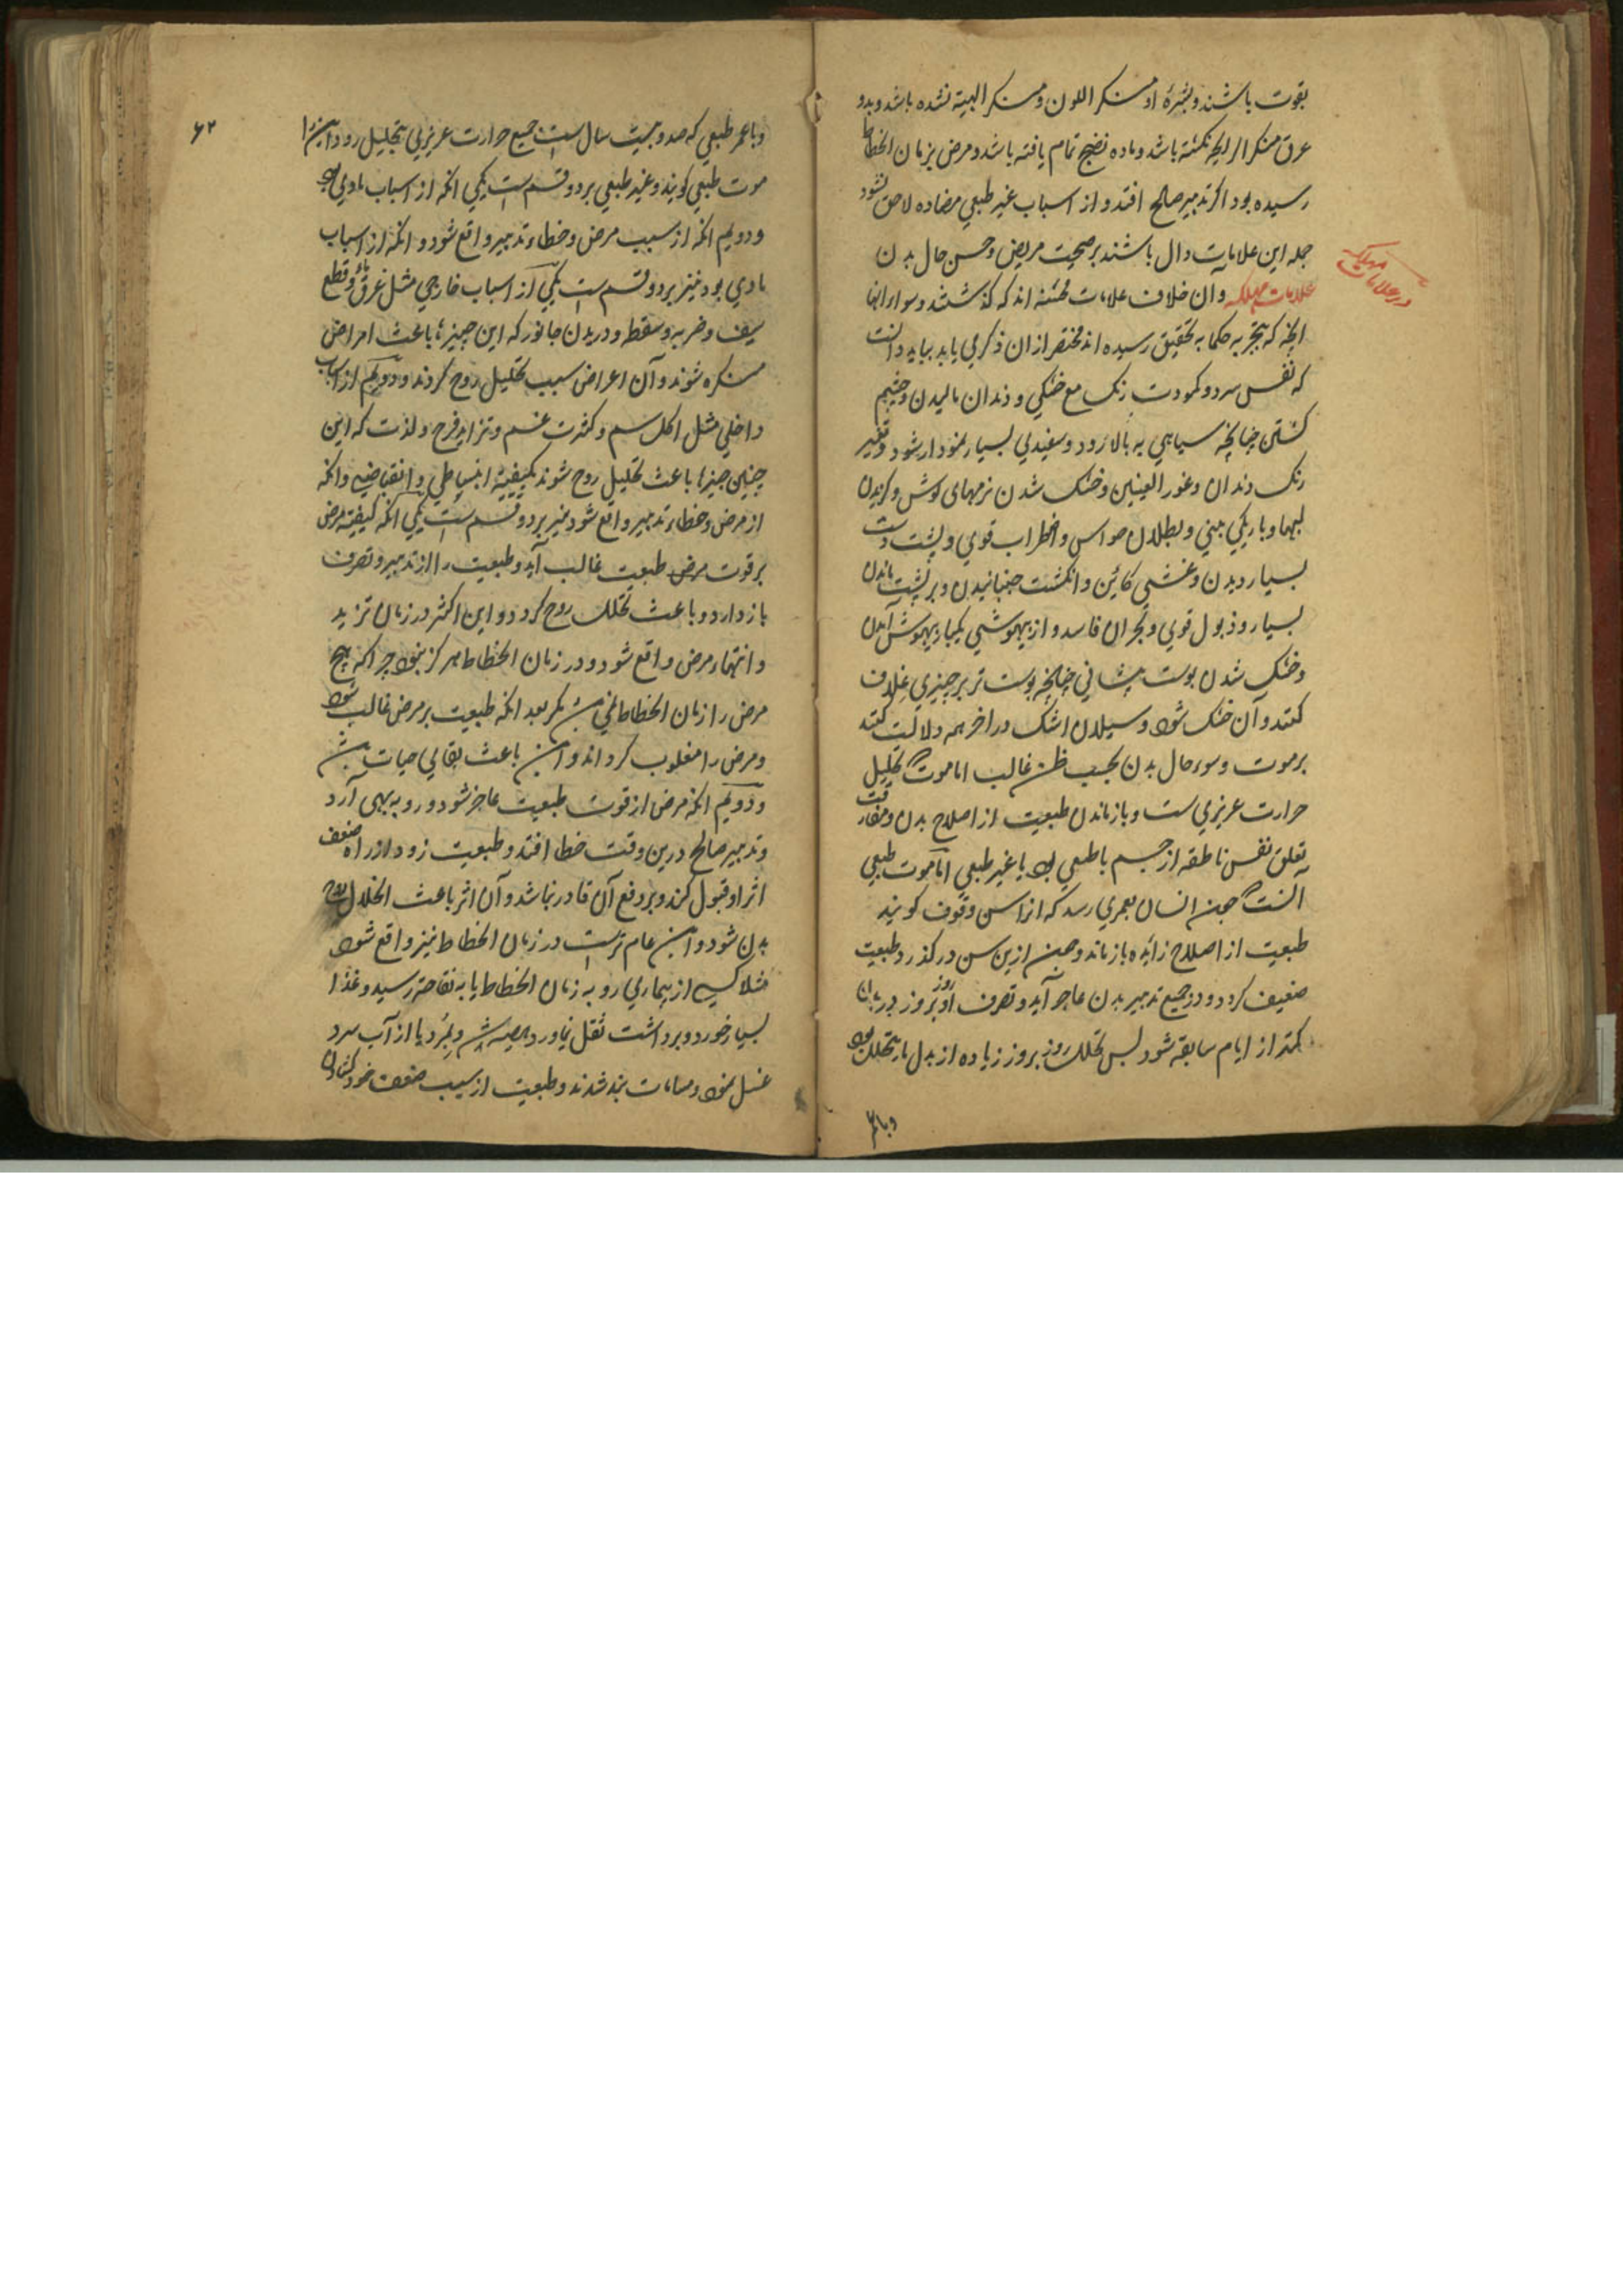 بقوت باشند و بشرهٔ او منکر اللون و منکر الهیئة نشده باشد و بدو
عرق منکر الرایحه نکشته باشد و ماده نضج تمام یافته باشد و مرض بزمان انحطاط
رسیده بود اکر تدبیر صالح افتد و از اسباب غیر طبعی مضاده لاحق نشود
جمله این علامات دال باشند بر صحت مریض و حسن حال بدن
در علامات مهلکه
علامات مهلکه و آن خلاف علامات محسنه اند که کذشتند و سوا رانها
انچه که بتجربه حکما به تحقیق رسیده اند مختصر ازان ذکر می یابد بباید دانست
که نفس سرد و کمودت رنک مع خشکی و دندان مالیدن و چشم
کشتن چنانچه سیاهی به بالا رود و سفیدی بسیار نمودار شود و تغیر
رنک دندان و غور العینین و خشک شدن نرمهای کوش و کزیدن
لبها و باریکی بینی و بطلان حواس و اضطراب قوی و پشت دست
بسیار دیدن و غشی کائن و انکشت جنبانیدن و بر پشت ماندن
بسیار و ذبول قوی و بحران فاسد و از بیهوشی یکبار بیهوش آمدن
و خشک شدن پوست پیشانی چنانچه پوست تر بر چیزی غلاف
کنند و آن خشک شود و سیلان اشک در اخر همه دلالت کنند
بر موت و سوء حال بدن بحسب ظن غالب اما موت تحلیل
حرارت عریزی ست و بازماندن طبعیت از اصلاح بدن و مفارقت
تعلق نفس ناطقه از جسم یا طبعی بود یا غیر طبعی اما موت طبعی
آنست که چون انسان بعمری رسد که انرا سن وقوف کویند
طبعیت از اصلاح زایده بازماند و چون ازین سن در کذرد طبعیت
ضعیف کردد و در جمیع تدبیر بدن عاجز آید و تصرف او روز بروز در بدن
کمتر از ایام سابقه شود پس تحلل روز بروز زیاده از بدل ما یتحلل بود
و با عمر
۶۲
و با عمر طبعی که صد و بیست سال است جمیع حرارت عریزی بتحلیل رود این را
موت طبعی کویند و غیر طبعی بر دو قسم ست یکی انکه از اسباب بادی بود
و دویم انکه از سبب مرض و خطاء تدبیر واقع شود و انکه از اسباب
بادی بود نیز بر دو قسم ست یکی از اسباب خارجی مثل غرق و قطع
سیف و ضربه و سقطه و دریدن جانور که این چیزها باعث امراض
منکره شوند و آن اعراض سبب تحلیل روح کردند و دویم از اسباب
داخلی مثل اکل سم و کثرت غم و تزاید فرح و لذت که این
چنین چیزها باعث تحلیل روح شوند بکیفیة انبساطی و انقباضیه و انکه
از مرض و خطاء تدبیر واقع شود نیز بر دو قسم ست یکی انکه کیفیته مرض
بر قوت مرض طبعت غالب آید و طبعیت را از تدبیر و تصرف
باز دارد و باعث تحلل روح کردد و این اکثر در زمان تزید
و انتهاء مرض واقع شود و در زمان انحطاط هرکز نبود چرا که هیچ
مرض را زمان انحطاط نمی باشد مکر بعد انکه طبعیت بر مرض غالب شود
و مرض را مغلوب کرداند و این باعث بقای حیات باشد
و دویم انکه مرض از قوت طبعیت عاجز شود و رو به بهی آرد
و تدبیر صالح درین وقت خطا افتد و طبعیت زود از راه ضعف
اثر او قبول کند و بر دفع آن قادر نباشد و آن اثر باعث انحلال روح
بدن شود و این عام ترست در زمان انحطاط نیز واقع شود
مثلا کسی از بیماری رو به زمان انحطاط یا به نقاهت رسید و غذا
بسیار خورد و برداشت ثقل نیاورد و هیضه شد و بمرد یا از آب سرد
غسل نمود و مسامات بند شدند و طبعیت از سبب ضعف خود کشادن